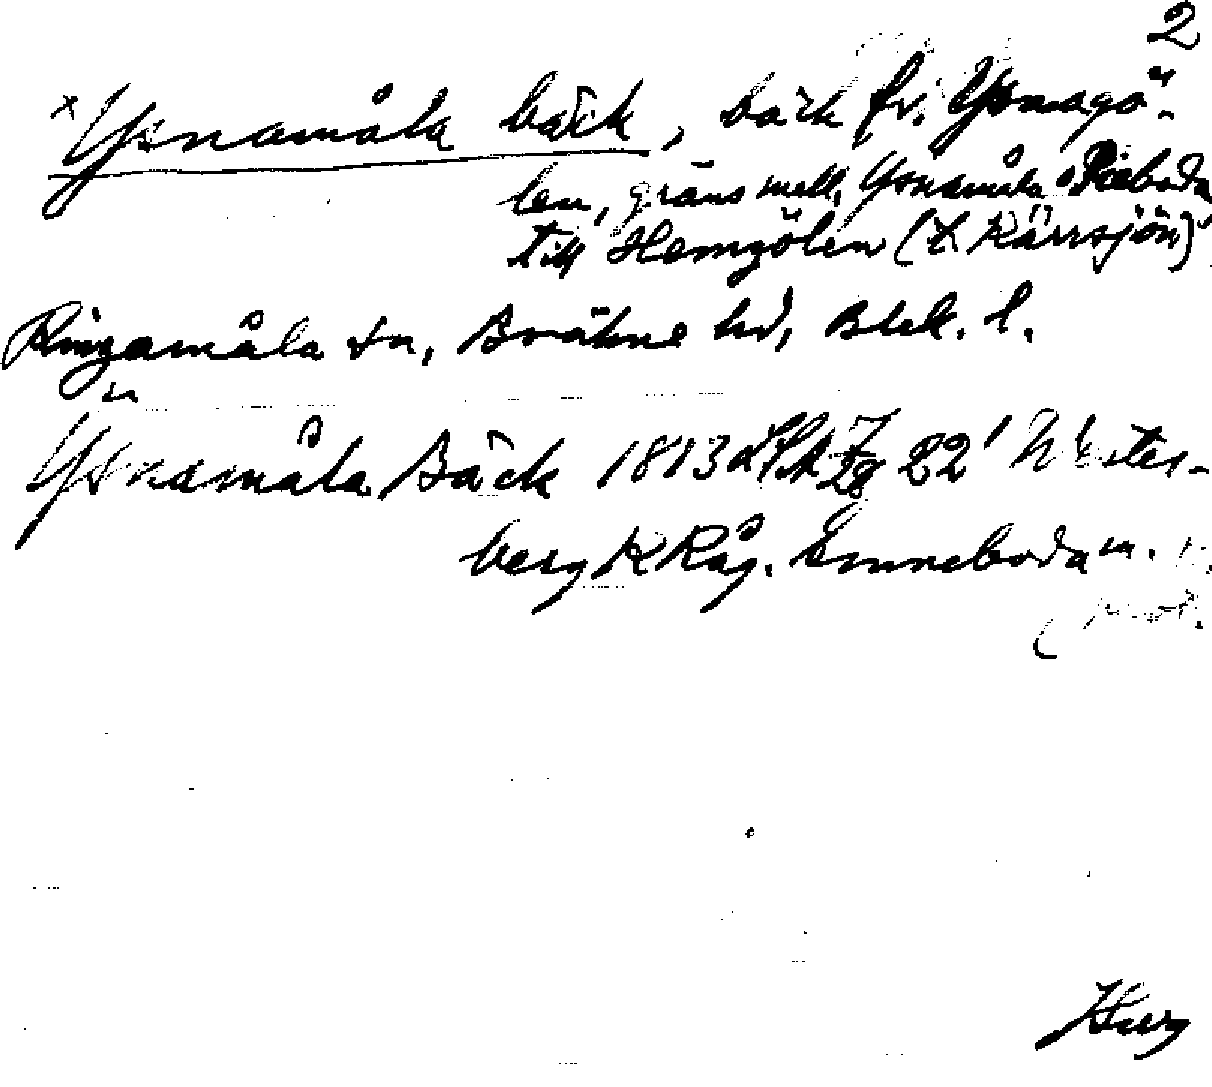 2
x Ysnamåla bäck, bäck fr. Ysnagö-
len, gräns mell. Ysnamåla o Rieboda
till Hemgölen (t. Kärrsjön)
Ringamåla sn, Bräkne hd, Blek. l.
Ysnamåla Bäck 1813 22' Wester-
berg K Råg. Emneboda m.
prot.